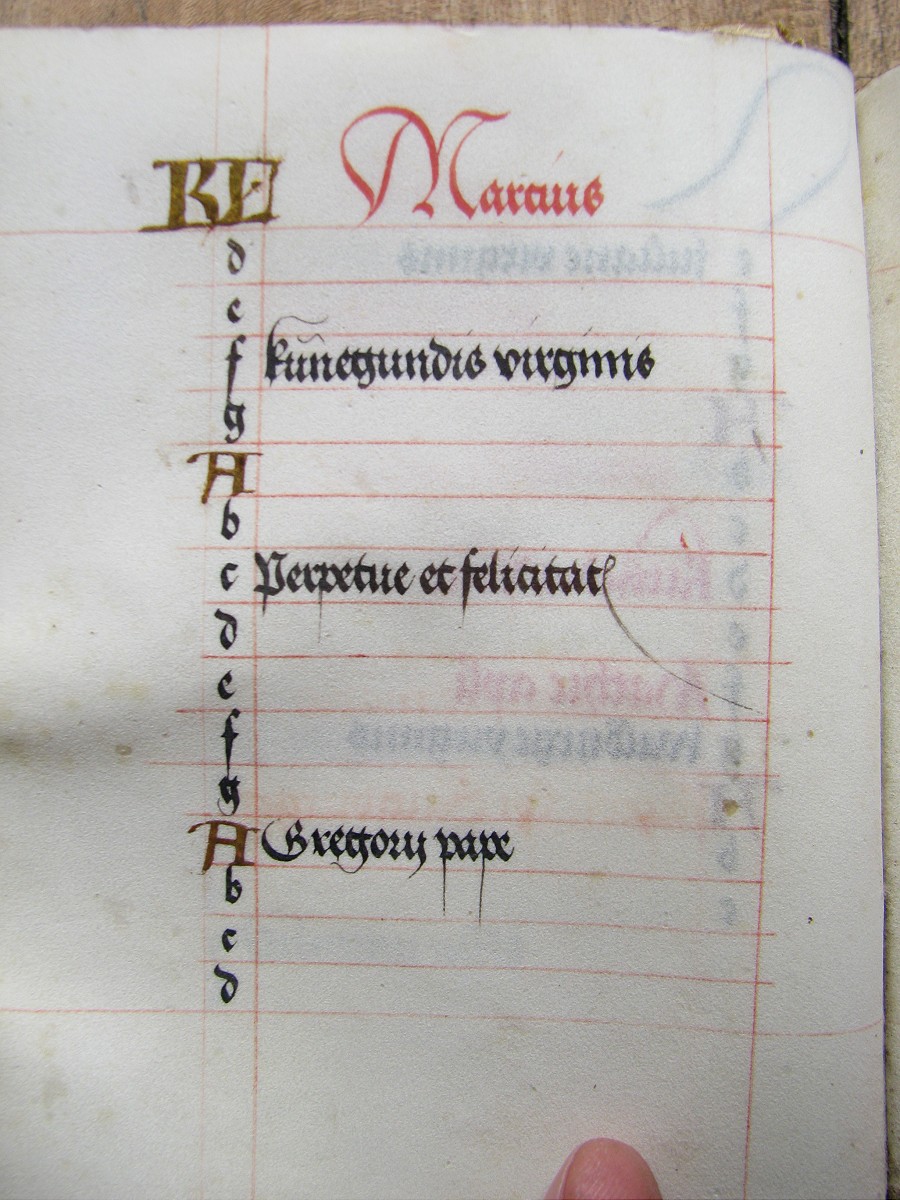 KL Marcius
d
e
f kunegundis virginis
g
A
b
c Perpetue et felicitat
d
e
f
g
A Gregorij pape
b
c
d